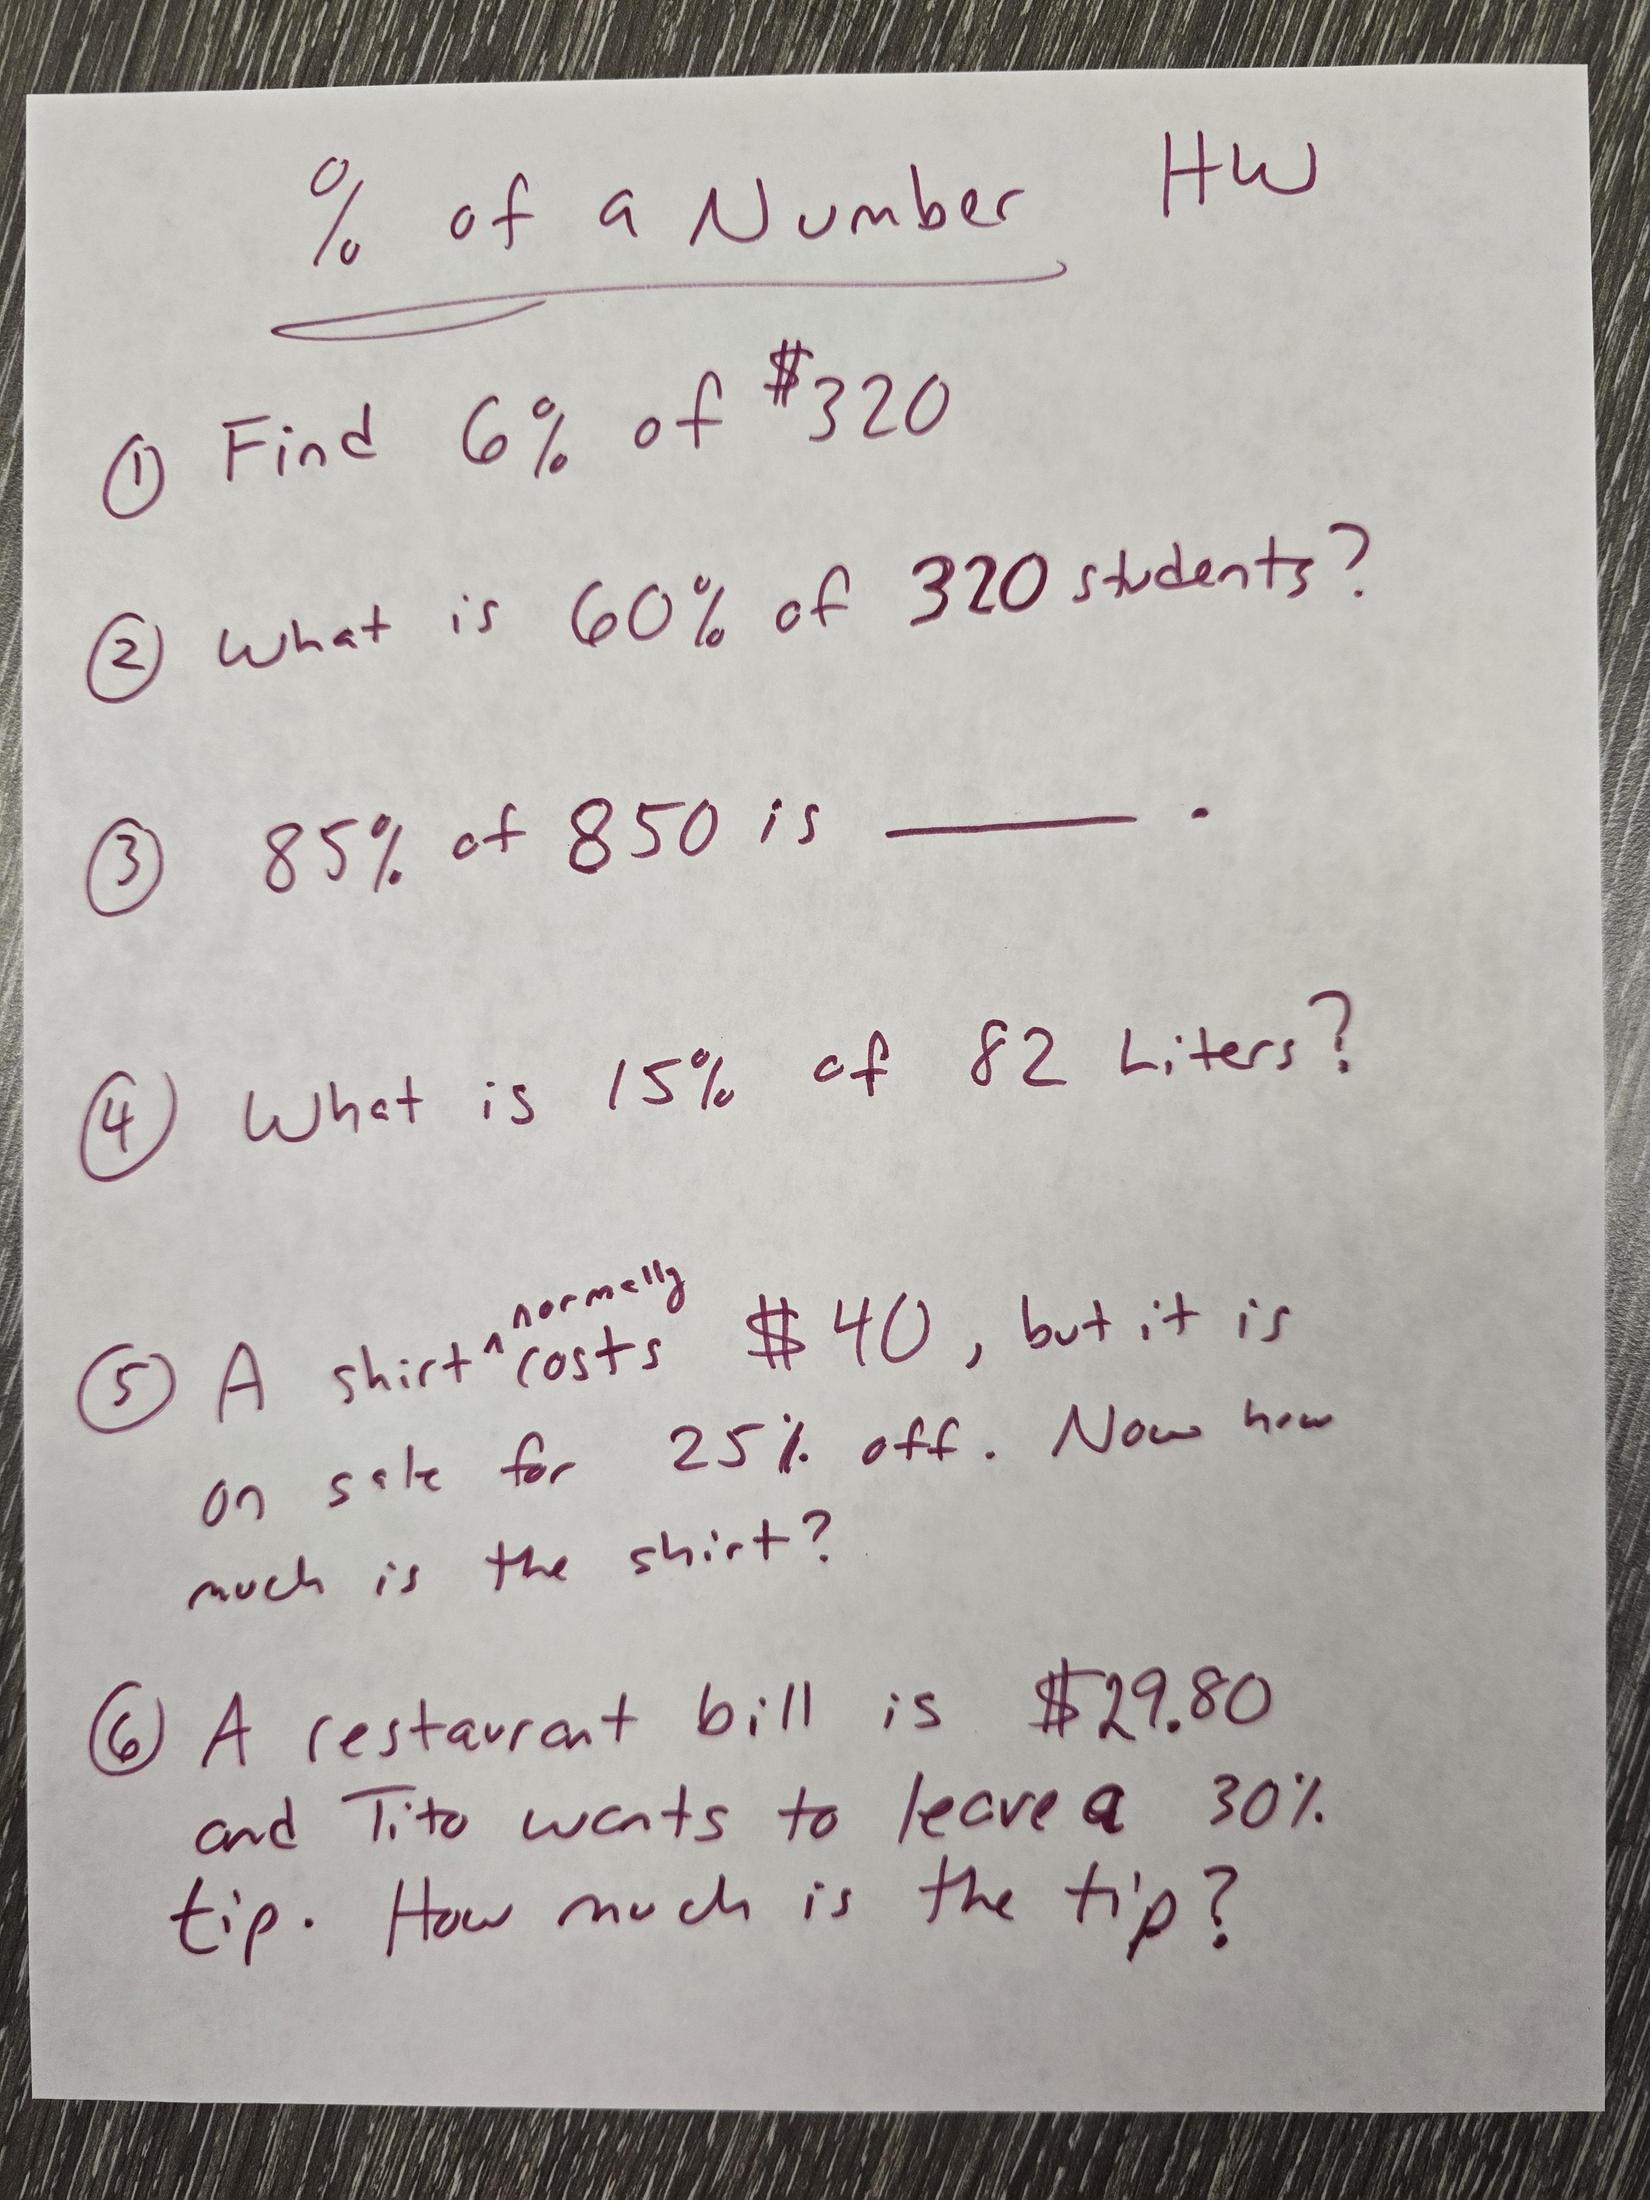 % of a Number HW
① Find 6% of $320
② What is 60% of 320 students?
③ 85% of 850 is ______ .
④ What is 15% of 82 Liters?
⑤ A shirt ^normally costs $40, but it is
on sale for 25% off. Now how
much is the shirt?
⑥ A restaurant bill is $29.80
and Tito wants to leave a 30%
tip. How much is the tip?